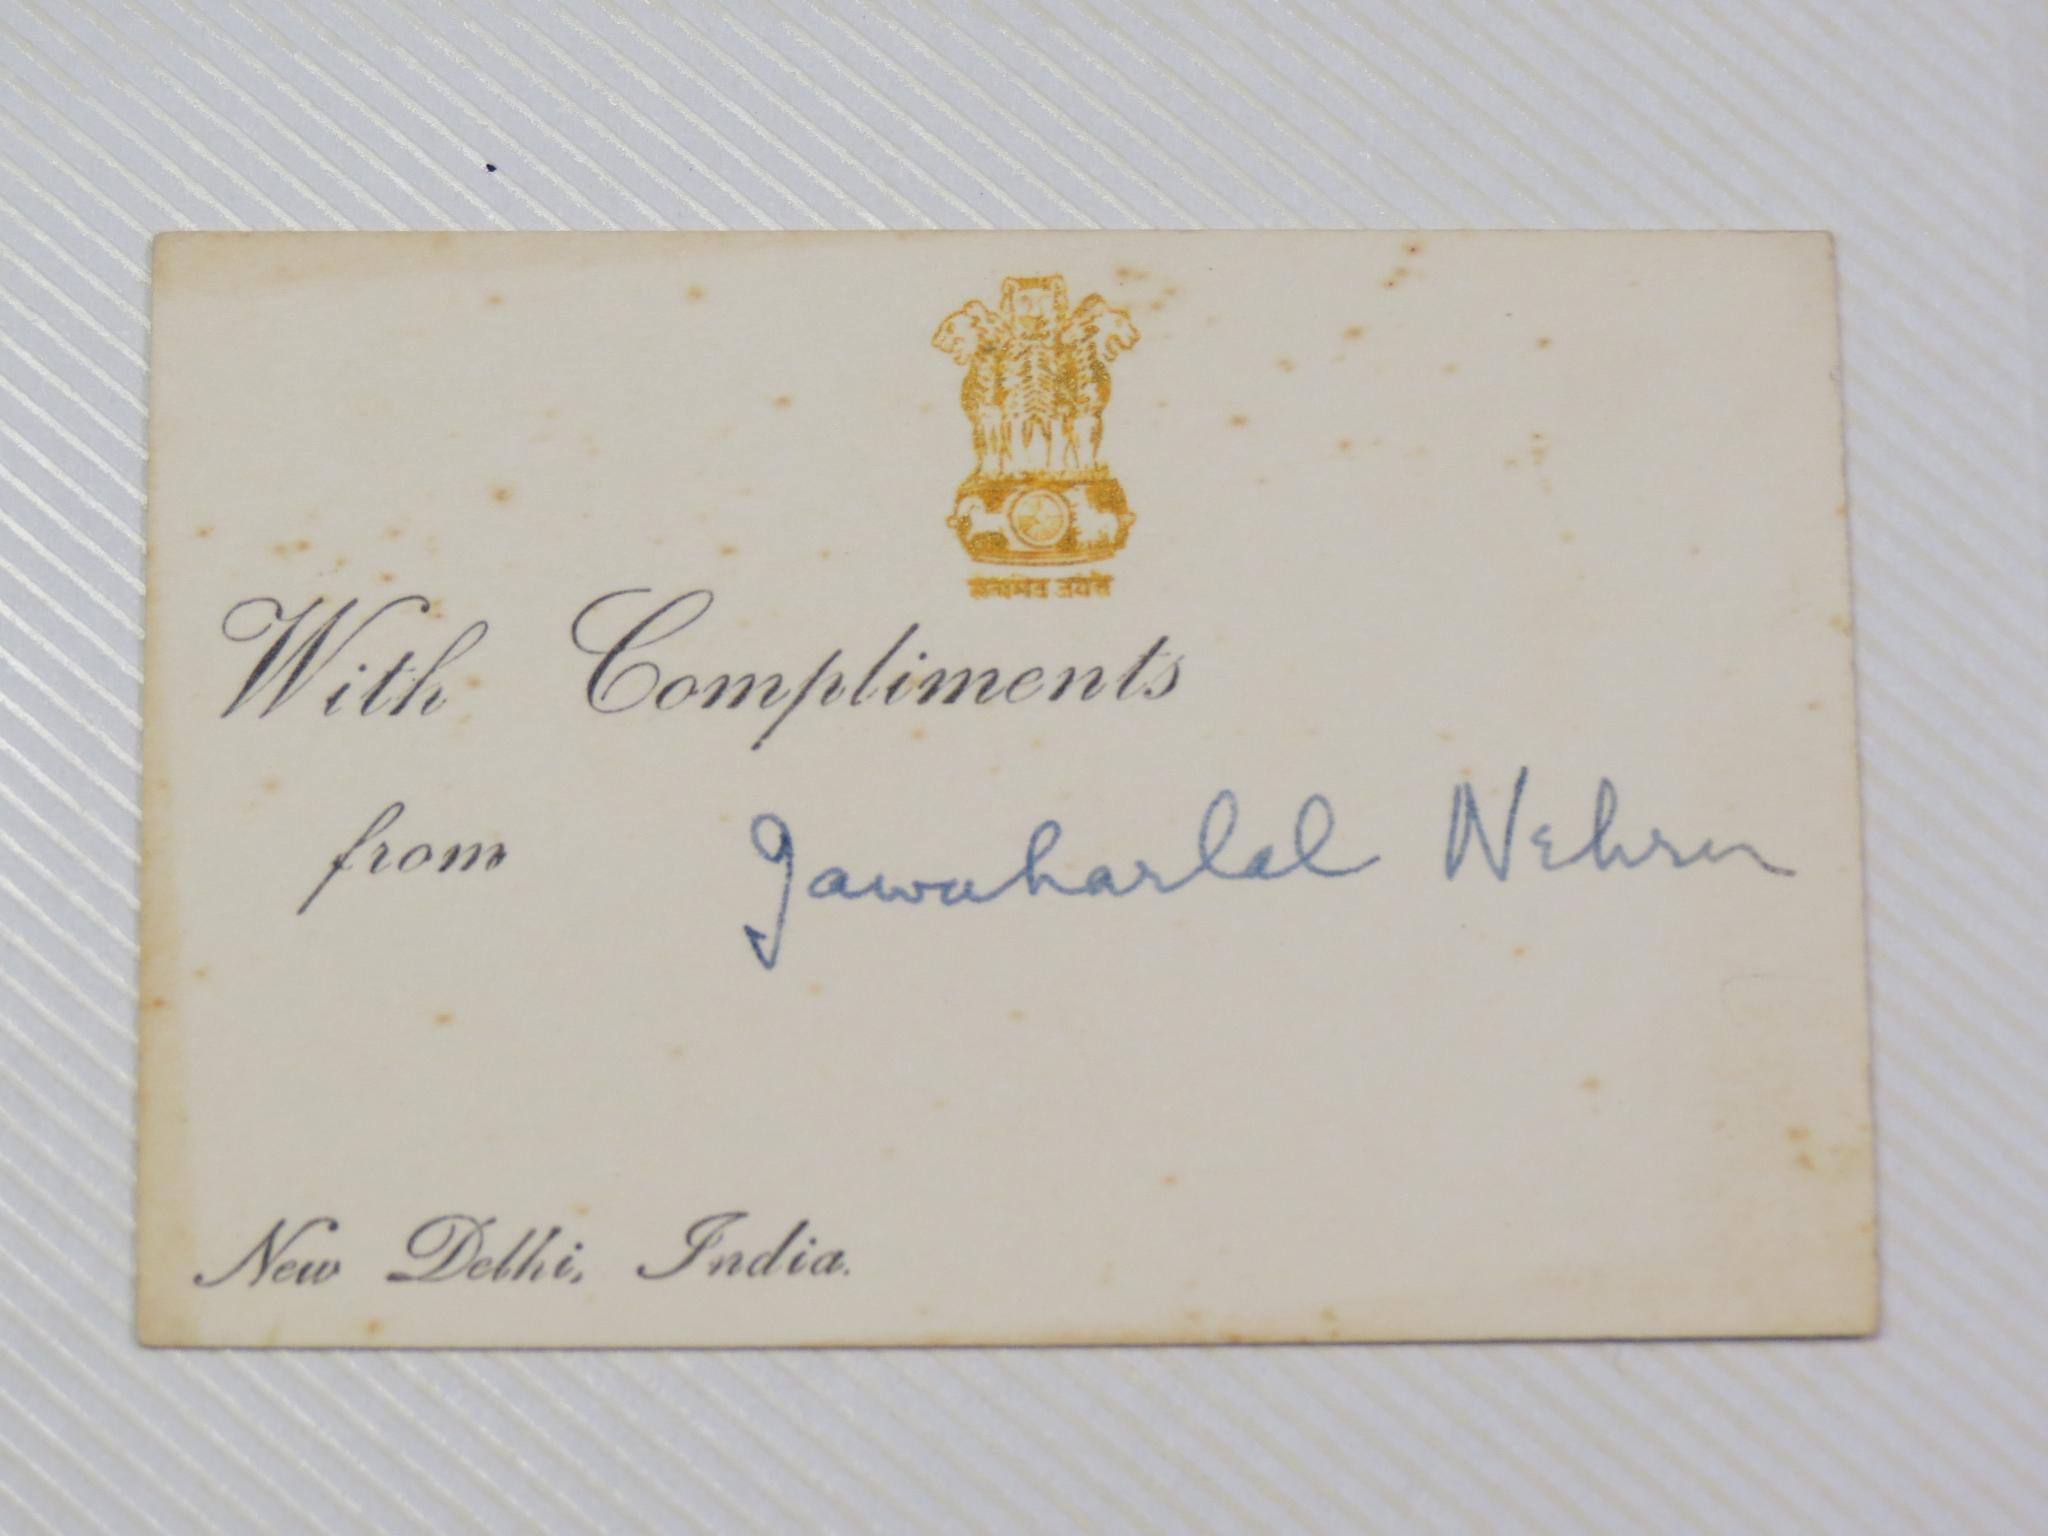 सत्यमेव जयते
With Compliments
from Jawaharlal Nehru
New Delhi, India.